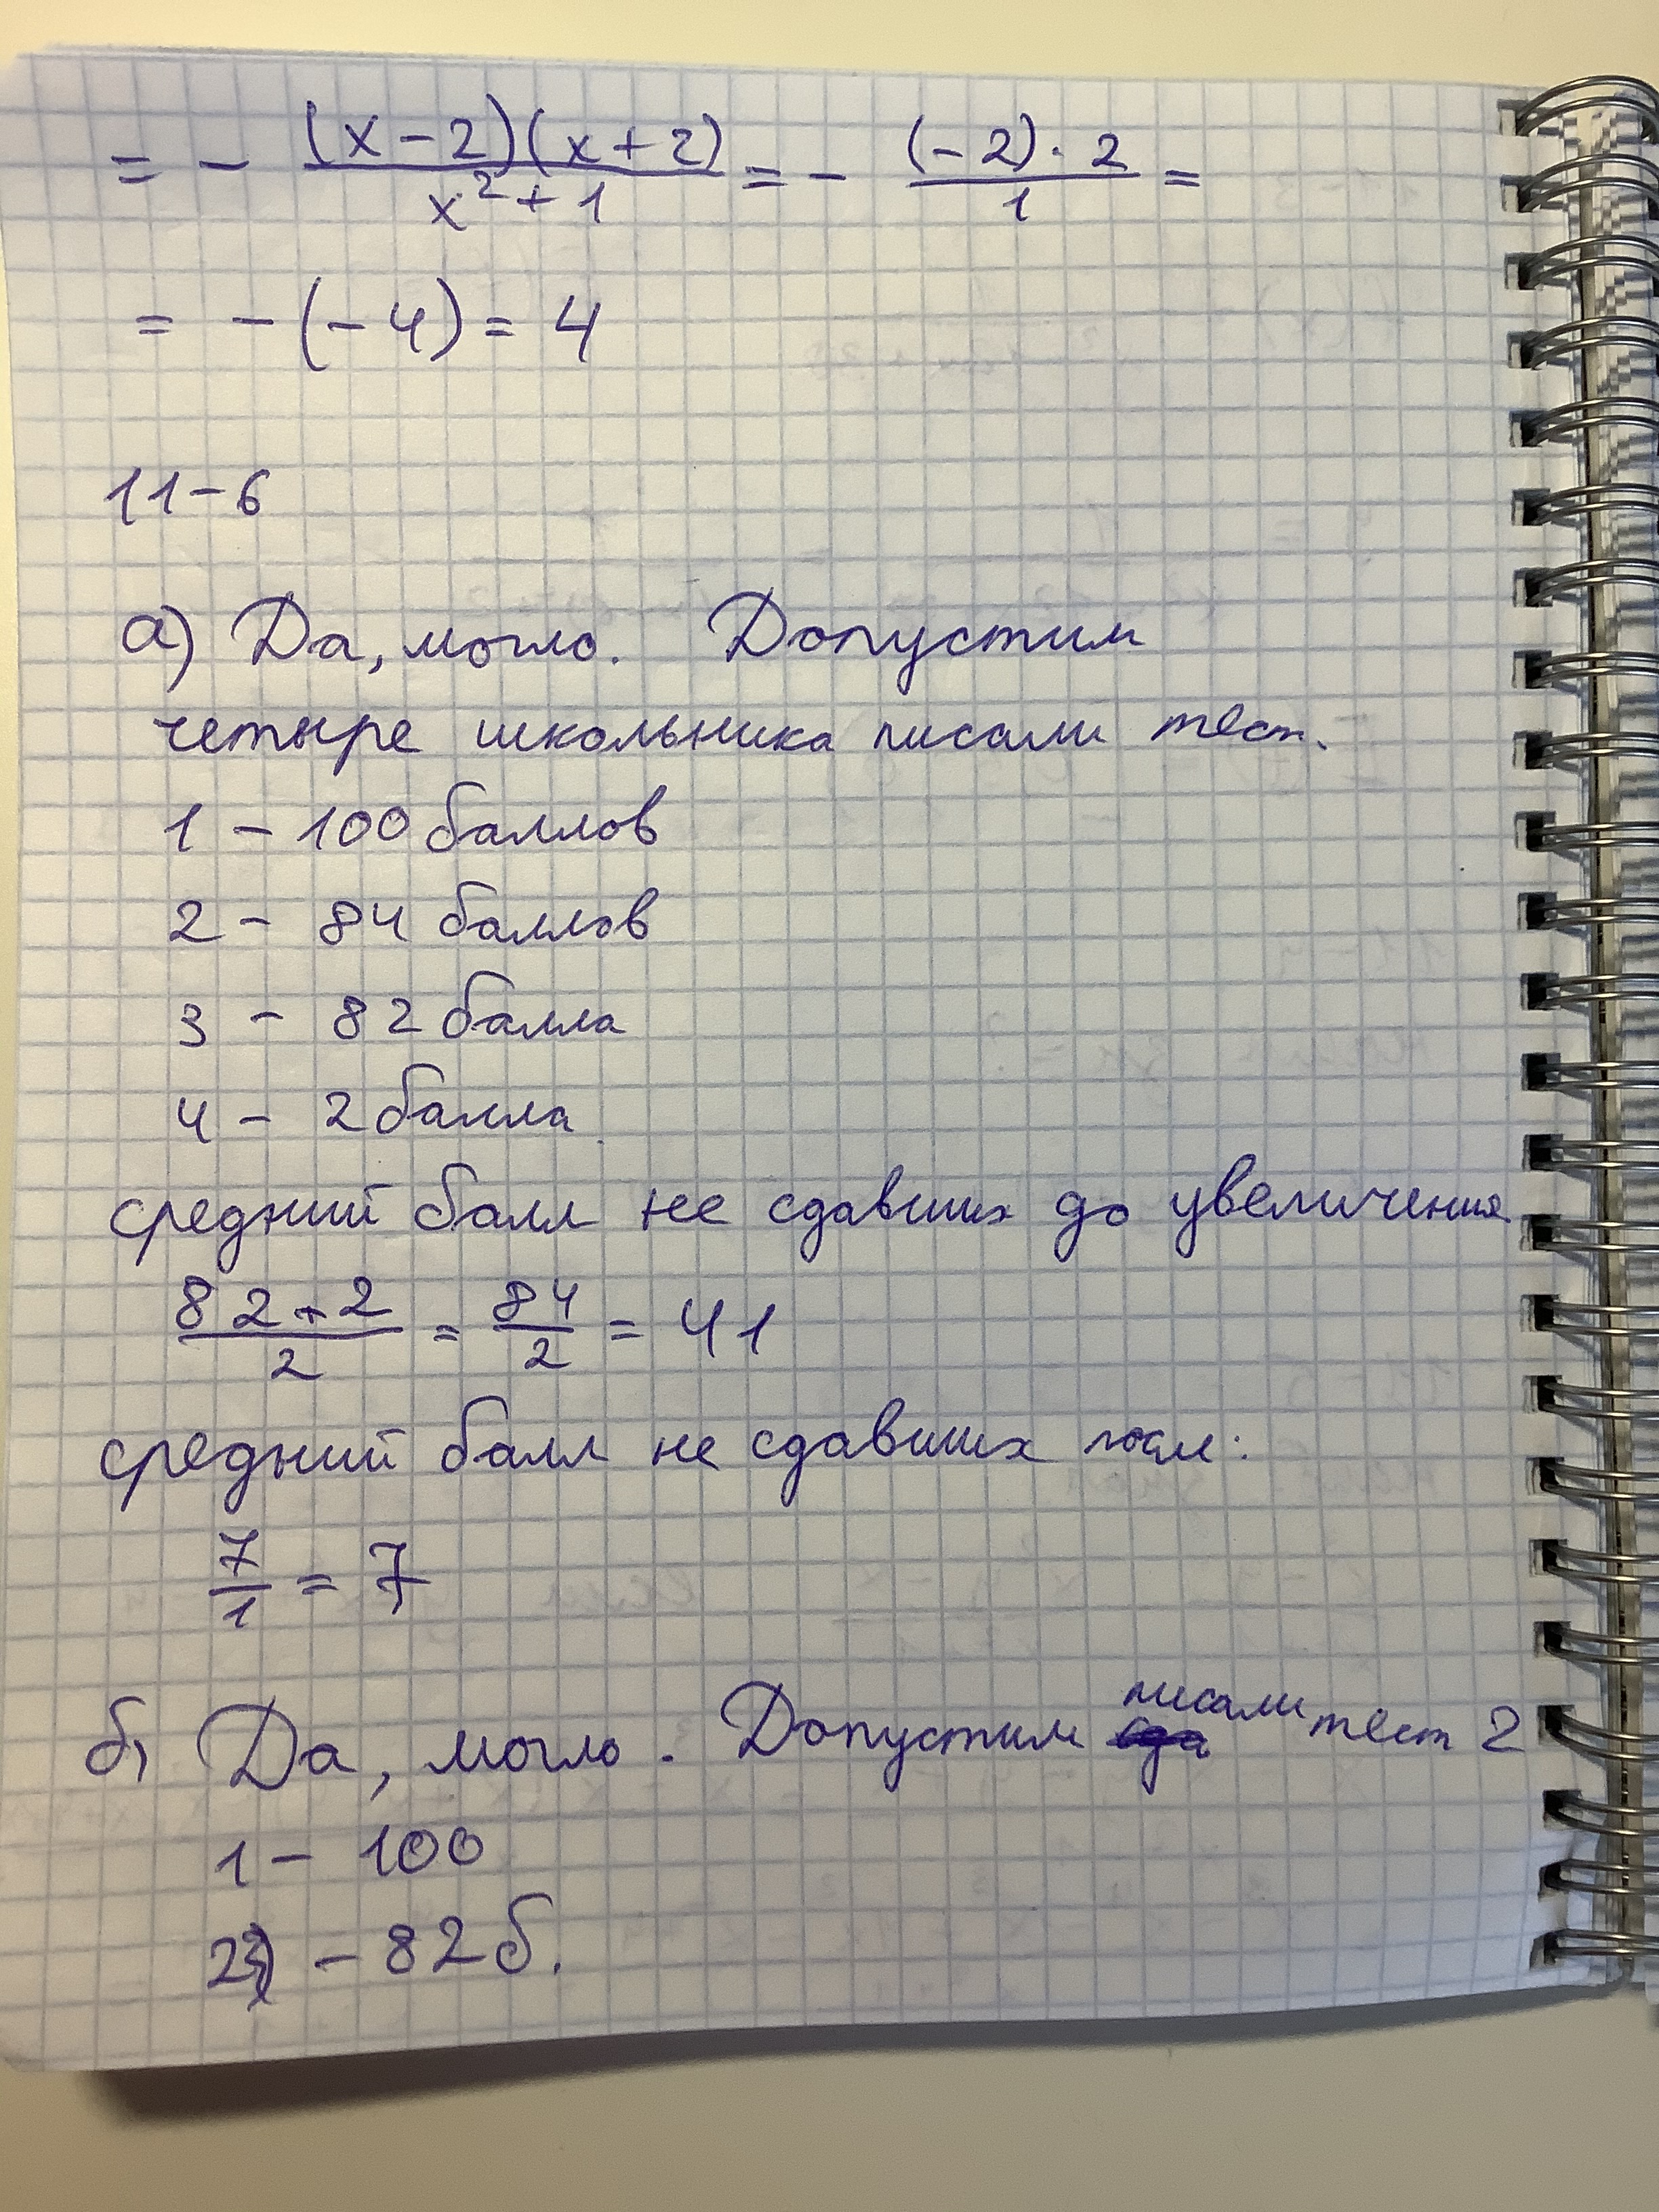 = - (x-2)(x+2) / x²+1 = - (-2)·2 / 1 =
= -(-4) = 4
11-6
а) Да, могло. Допустим
четыре школьника писали тест.
1 - 100 баллов
2 - 84 баллов
3 - 82 балла
4 - 2 балла
средний балл не сдавших до увеличения
82+2 / 2 = 84 / 2 = 41
средний балл не сдавших посл:
7/1 = 7
б) Да, могло. Допустим писали тест 2
1 - 100
2) - 82 б.